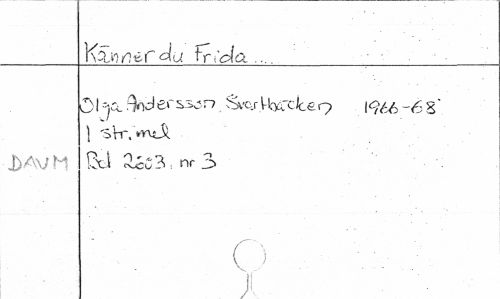 Känner du Frida....
Olga Andersson, Svartbäcken 1966-68
1 str. mel
DAUM Bd 2603, nr 3